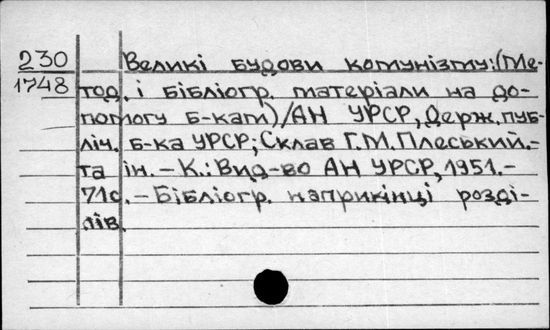 230 Великі будови комунізму:(Ме-
1748 тод. і бібліогр. матеріали на до-
помогу б-кам)/АН УРСР, Держ. пуб-
ліч. б-ка УРСР; Склав Г.М.Плеський.-
та ін. – К.: Вид-во АН УРСР, 1951.-
71с. – Бібліогр. наприкінці розді-
лів.